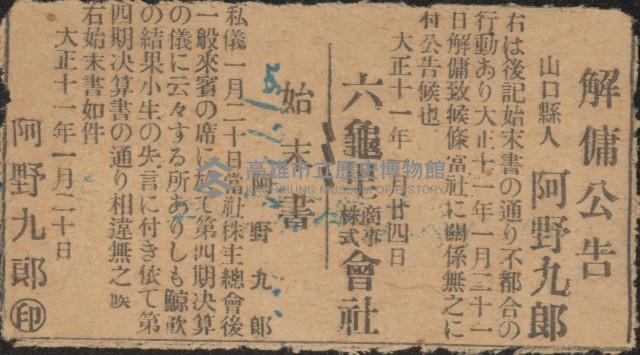 解傭公告
山口縣人 阿野九郎
右は後記始末書の通り不都合の
行動あり大正十一年一月二十一
日解傭致候條當社に關係無之に
付公告候也
大正十一年 廿四日
六龜 商事株式會社
始末書
阿野九郎
私儀一月二十日當社株主總會後
一般來賓の席に於て第四期決算
の儀に云々する所ありしも鯨飲
の結果小生の失言に付き依て第
四期決算書の通り相違無之候
右始末書如件
大正十一年一月二十日
阿野九郎 印
高雄市立歷史博物館
KAOHSIUNG MUSEUM OF HISTORY